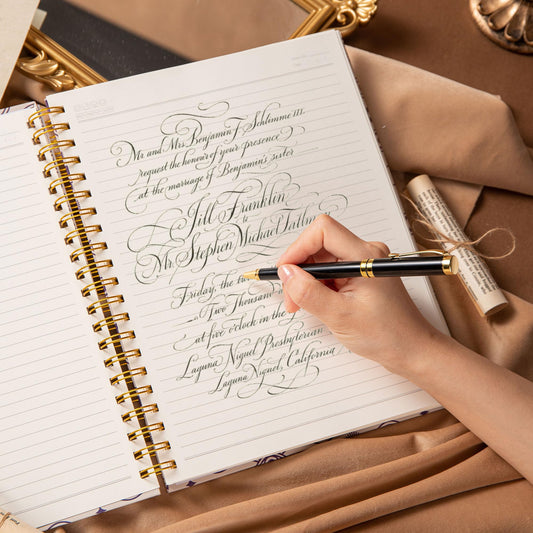 Mr and Mrs Benjamin F. Schlemme III
request the honour of your presence
at the marriage of Benjamin's sister
Jill Franklin
to
Mr. Stephen Michael
Friday, the
Two Thousand
at five o'clock in the
Laguna Niguel Presbyterian
Laguna Niguel, California